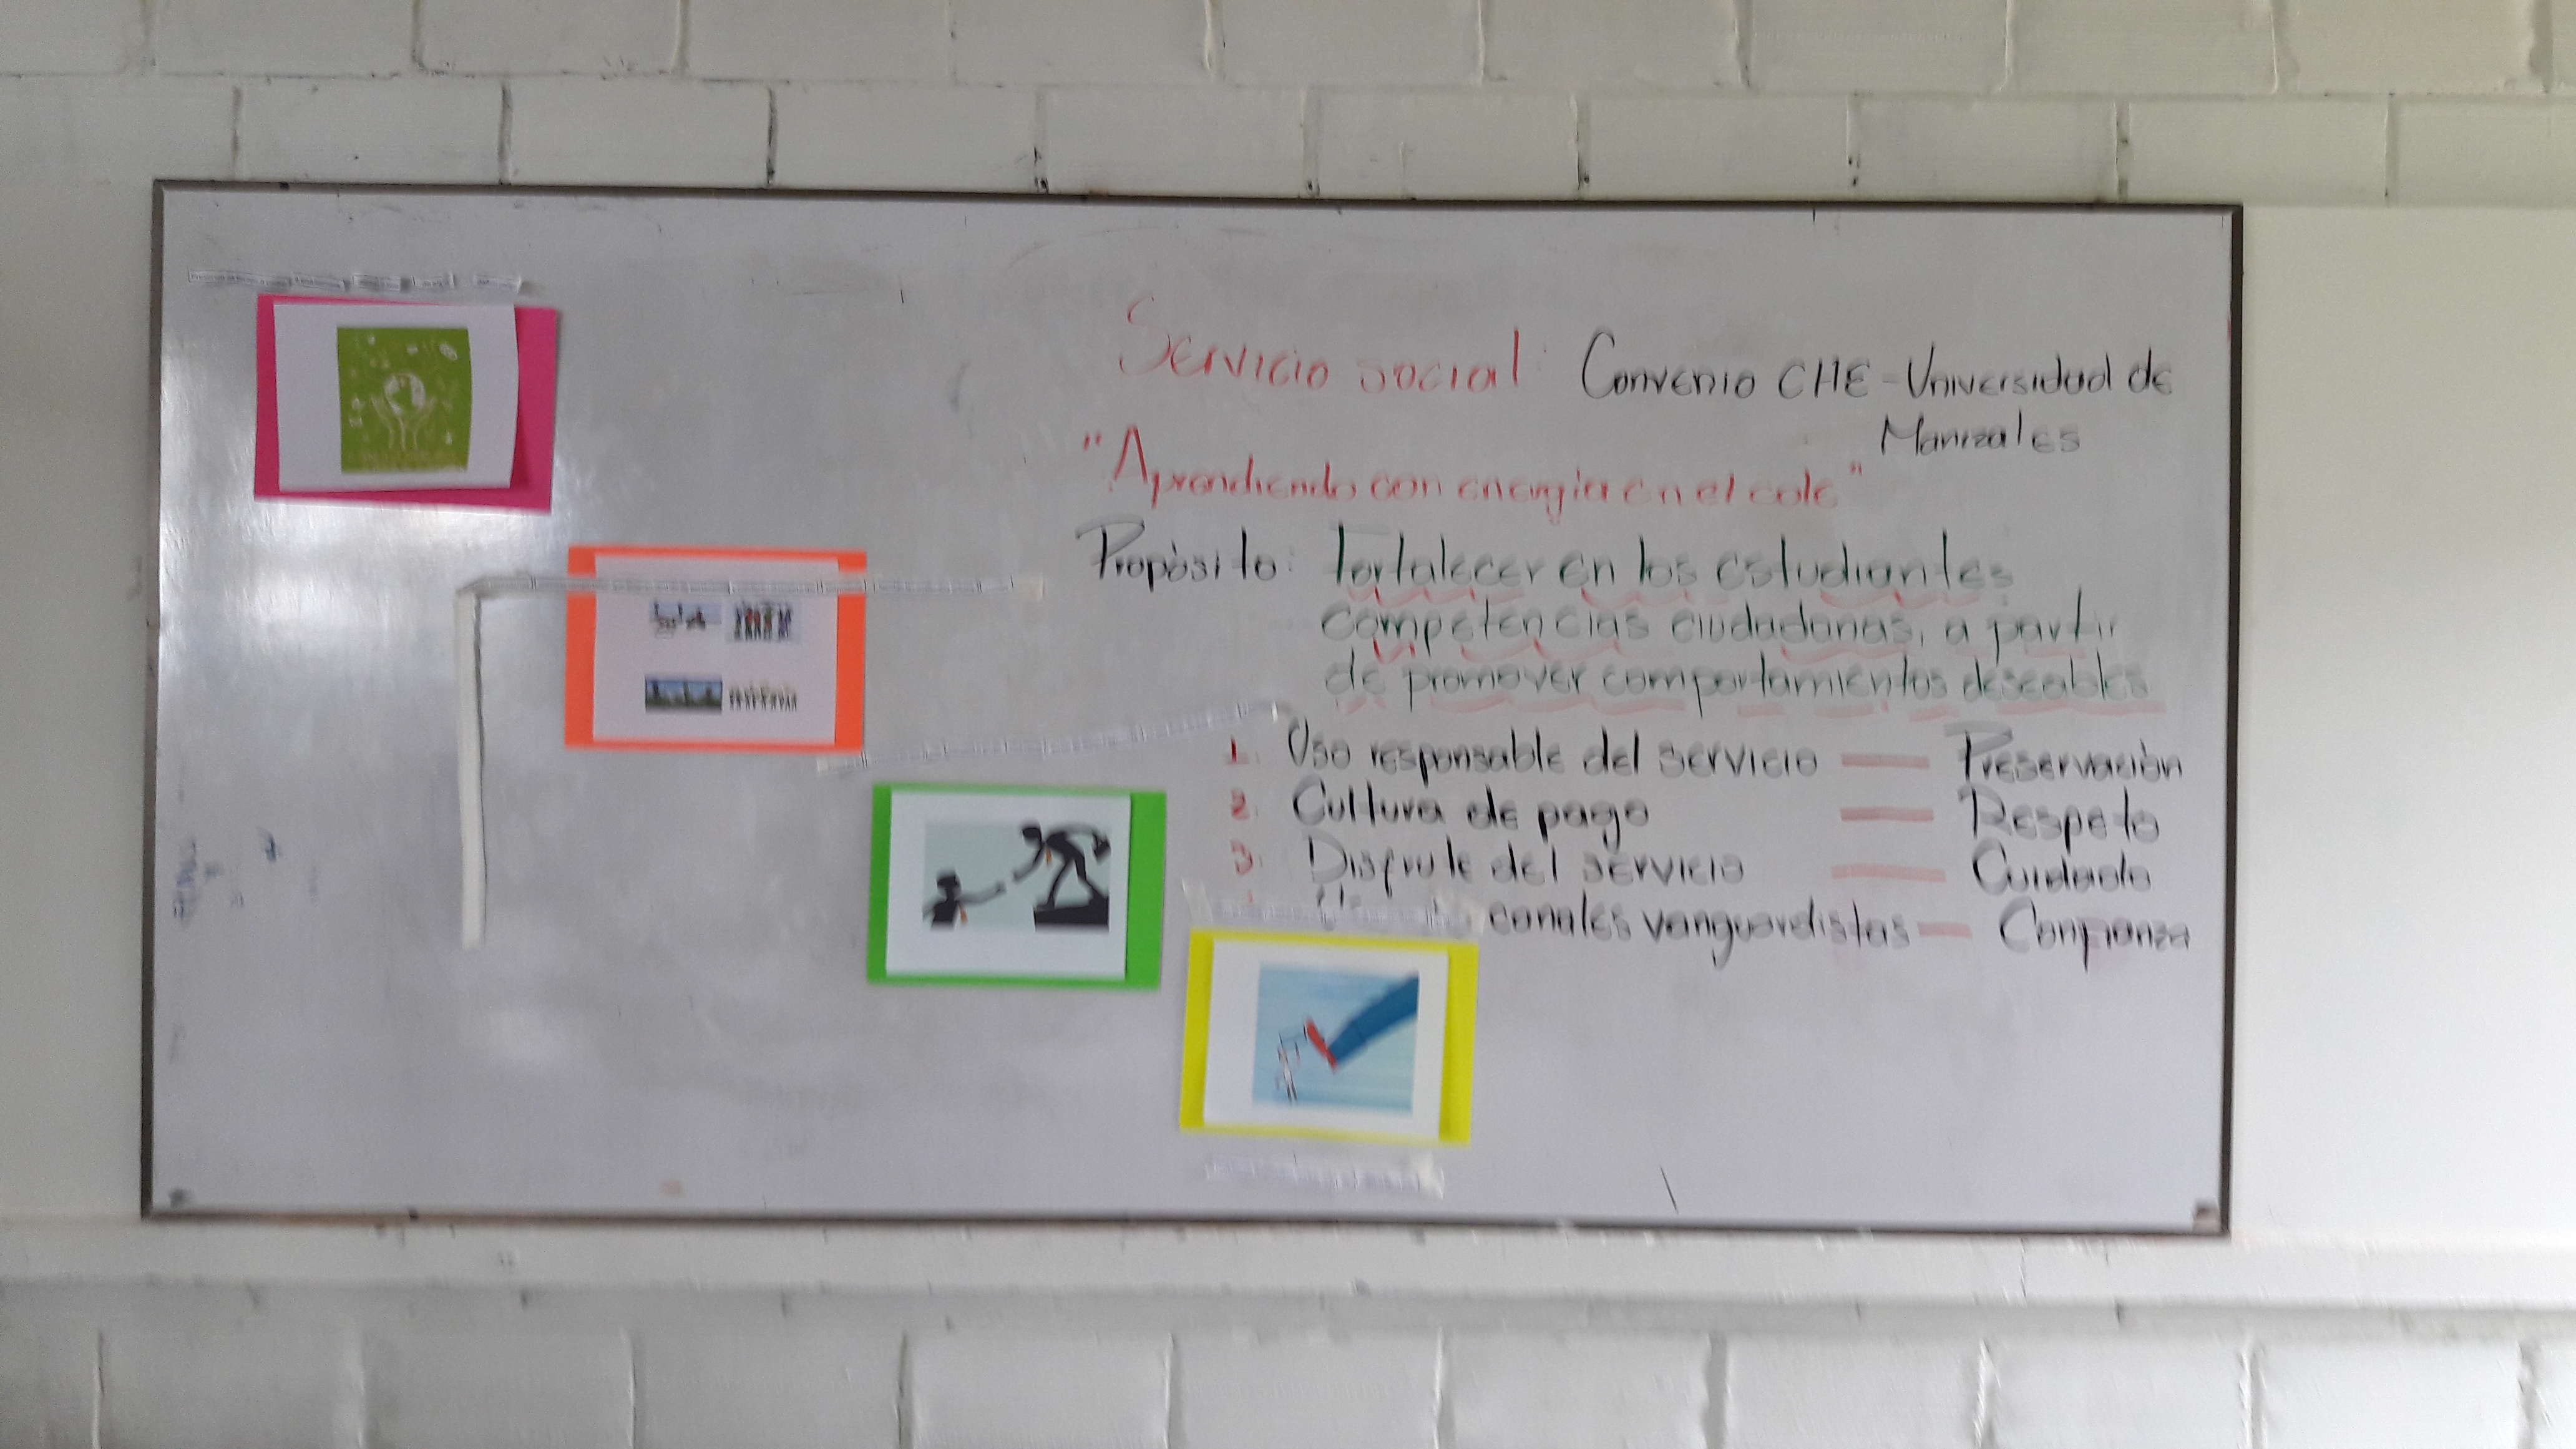 Servicio social: Convenio CHE - Universidad de
Manizales
"Aprendiendo con energía en el cole"
Propósito: Fortalecer en los estudiantes
competencias ciudadanas, a partir
de promover comportamientos deseables
1. Uso responsable del servicio — Preservación
2. Cultura de pago — Respeto
3. Disfrute del servicio — Cuidado
canales vanguardistas — Confianza